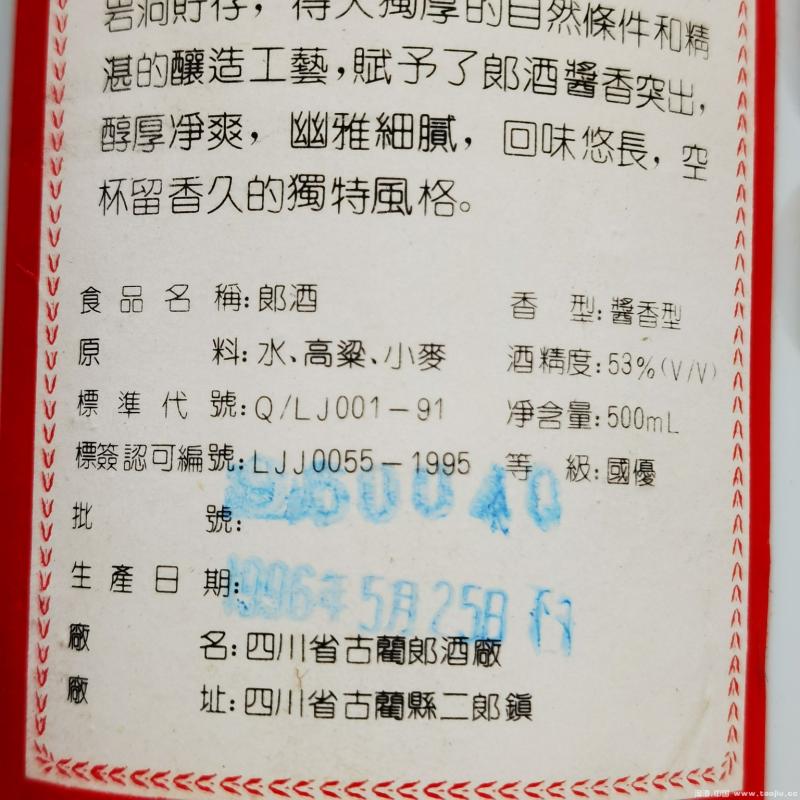 岩洞貯存，得天獨厚的自然條件和精
湛的釀造工藝，賦予了郎酒醬香突出，
醇厚净爽，幽雅細膩，回味悠長，空
杯留香久的獨特風格。
食品名稱：郎酒 香型：醬香型
原料：水、高粱、小麥 酒精度：53%(V/V)
標準代號：Q/LJ001－91 净含量：500mL
標簽認可編號：LJJ0055－1995 等級：國優
批號：
生產日期：1996年5月25日
廠名：四川省古藺郎酒廠
廠址：四川省古藺縣二郎鎮
www.taojiu.cc